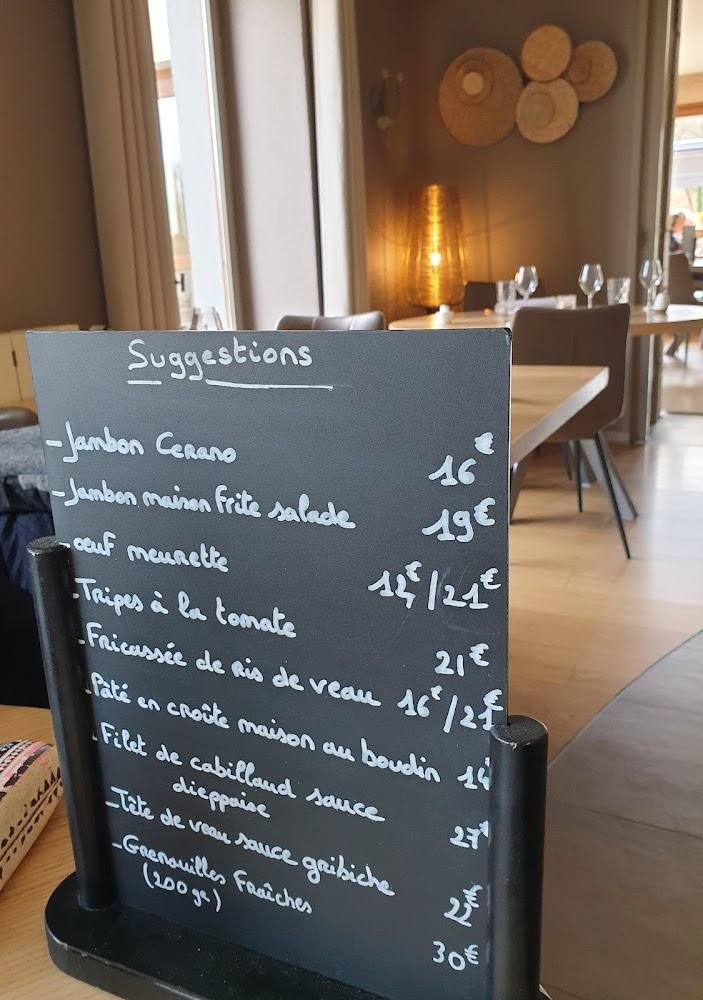 Suggestions
- Jambon Cerano 16€
- Jambon maison frite salade 19€
- oeuf meurette 14€/21€
- Tripes à la tomate 21€
- Fricassée de Ris de veau 16€/21€
- Pâté en croûte maison au boudin 14
- Filet de cabillaud sauce
dieppoise 27€
- Tête de veau sauce gribiche 22€
- Grenouilles Fraîches 30€
(200 gr)